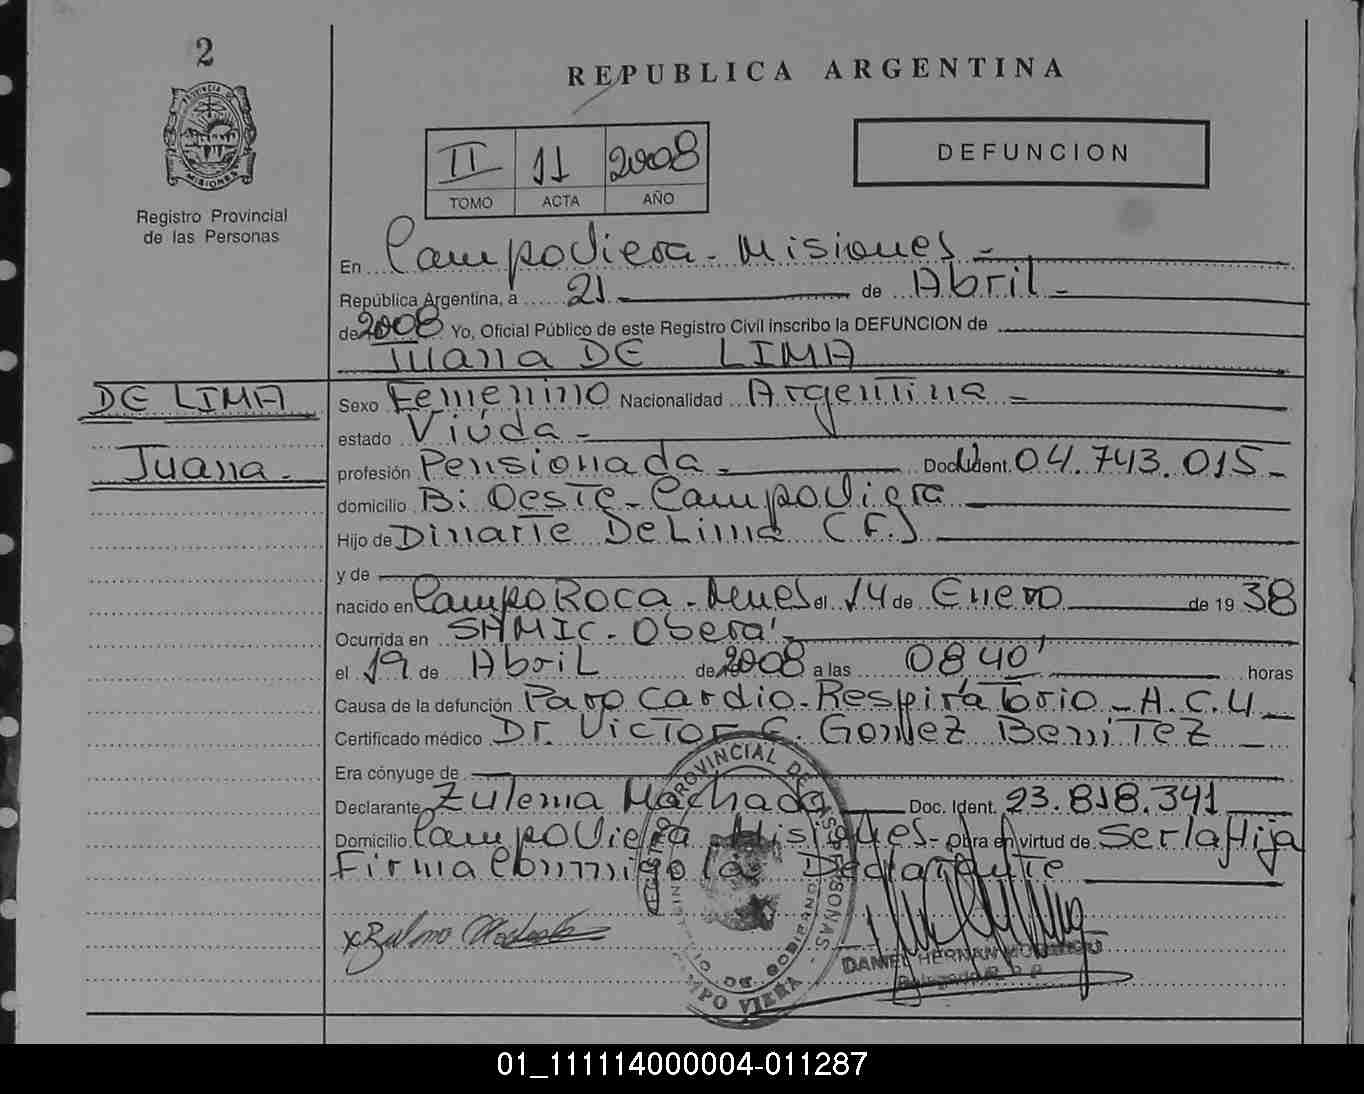 2
PROVINCIA DE
MISIONES
Registro Provincial
de las Personas
REPUBLICA ARGENTINA
II 11 2008
TOMO ACTA AÑO
DEFUNCION
En Campo Viera - Misiones -
República Argentina, a 21 - de Abril -
de 2008 Yo, Oficial Público de este Registro Civil inscribo la DEFUNCION de
Juana DE LIMA
DE LIMA
Juana -
Sexo Femenino Nacionalidad Argentina -
estado Viúda -
profesión Pensionada - Doc. Ident. 04.743.015 -
domicilio B: Oeste - Campo Viera
Hijo de Dinarte De Lima (F.)
y de
nacido en Campo Roca - el 14 de Enero de 1938
Ocurrida en SAMIC - Oberá -
el 19 de Abril de 2008 a las 08 40' horas
Causa de la defunción Paro Cardio - Respiratorio - A.C.V -
Certificado médico Dr. Victor E. Gomez Benitez -
Era cónyuge de
Declarante Zulema Machado Doc. Ident. 23.818.341
Domicilio Campo Viera - Misiones - Obra en virtud de Ser la Hija
Firma Conmigo la Declarante
REGISTRO PROVINCIAL DE LAS PERSONAS -
MINISTERIO DE GOBIERNO
CAMPO VIERA
DANIEL HERNAN
01_111114000004-011287